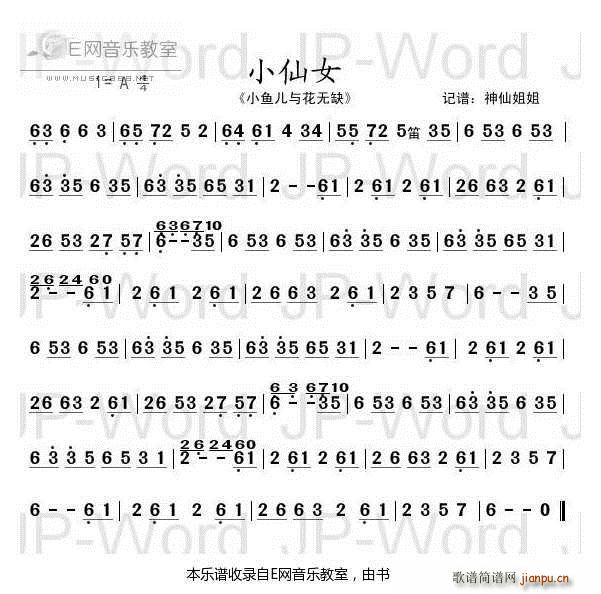 E网音乐教室
小仙女
1= A 4/4
《小鱼儿与花无缺》 记谱：神仙姐姐
63 6 6 3 | 65 72 5 2 | 64 61 4 34 | 55 72 5笛 35 | 6 53 6 53 |
63 35 6 35 | 63 35 65 31 | 2 - - 61 | 2 61 2 61 | 26 63 2 61 |
636710
26 53 27 57 | 6 - - 35 | 6 53 6 53 | 63 35 6 35 | 63 35 65 31 |
262460
2 - - 61 | 2 61 2 61 | 26 63 2 61 | 2 3 5 7 | 6 - - 35 |
6 53 6 53 | 63 35 6 35 | 63 35 65 31 | 2 - - 61 | 2 61 2 61 |
636710
26 63 2 61 | 26 53 27 57 | 6 - - 35 | 6 53 6 53 | 63 35 6 35 |
262460
63 35 65 31 | 2 - - 61 | 2 61 2 61 | 26 63 2 61 | 2 3 5 7 |
6 - - 61 | 2 61 2 61 | 26 63 2 61 | 2 3 5 7 | 6 - - 0 ‖
JP-Word
本乐谱收录自E网音乐教室，由书
歌谱简谱网
jianpu.cn